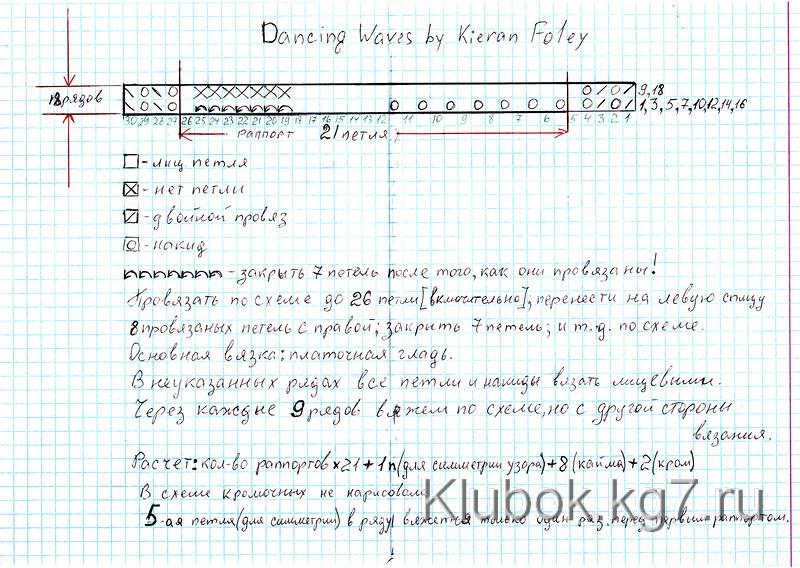 Dancing Waves by Kieran Foley
18 рядов
9,18
1,3,5,7,10,12,14,16
30 29 28 27 26 25 24 23 22 21 20 19 18 17 16 15 14 13 12 11 10 9 8 7 6 5 4 3 2 1
раппорт 21 петля
- лиц. петля
- нет петли
- двойной провяз
- накид
- закрыть 7 петель после того, как они провязаны!
Провязать по схеме до 26 петли [включительно], перенести на левую спицу
8 провязаных петель с правой; закрыть 7 петель; и т.д. по схеме.
Основная вязка: платочная гладь.
В неуказанных рядах все петли и накиды вязать лицевыми.
Через каждые 9 рядов вяжем по схеме, но с другой стороны
вязания.
Расчет: кол-во раппортов х 21 + 1п (для симметрии узора) + 8 (кайма) + 2 (кром)
В схеме кромочных не нарисовала
5-ая петля (для симметрии) в ряду вяжется только один раз перед первым раппортом.
Klubok.kg7.ru